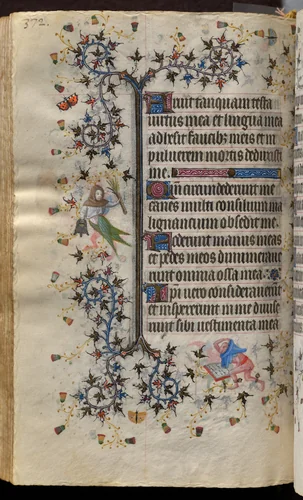 372.
Aruit tanquam testa
uirtus mea et lingua mea
adhesit faucibus meis et in
puluerem mortis deduxisti
me.
Qm circumdederunt me
canes multi consilium ma
lignantium obsedit me.
Foderunt manus meas
et pedes meos dinumeraue
runt omnia ossa mea.
Ipi uero considerauerunt
et inspexerunt in me diuise
runt sibi uestimenta mea